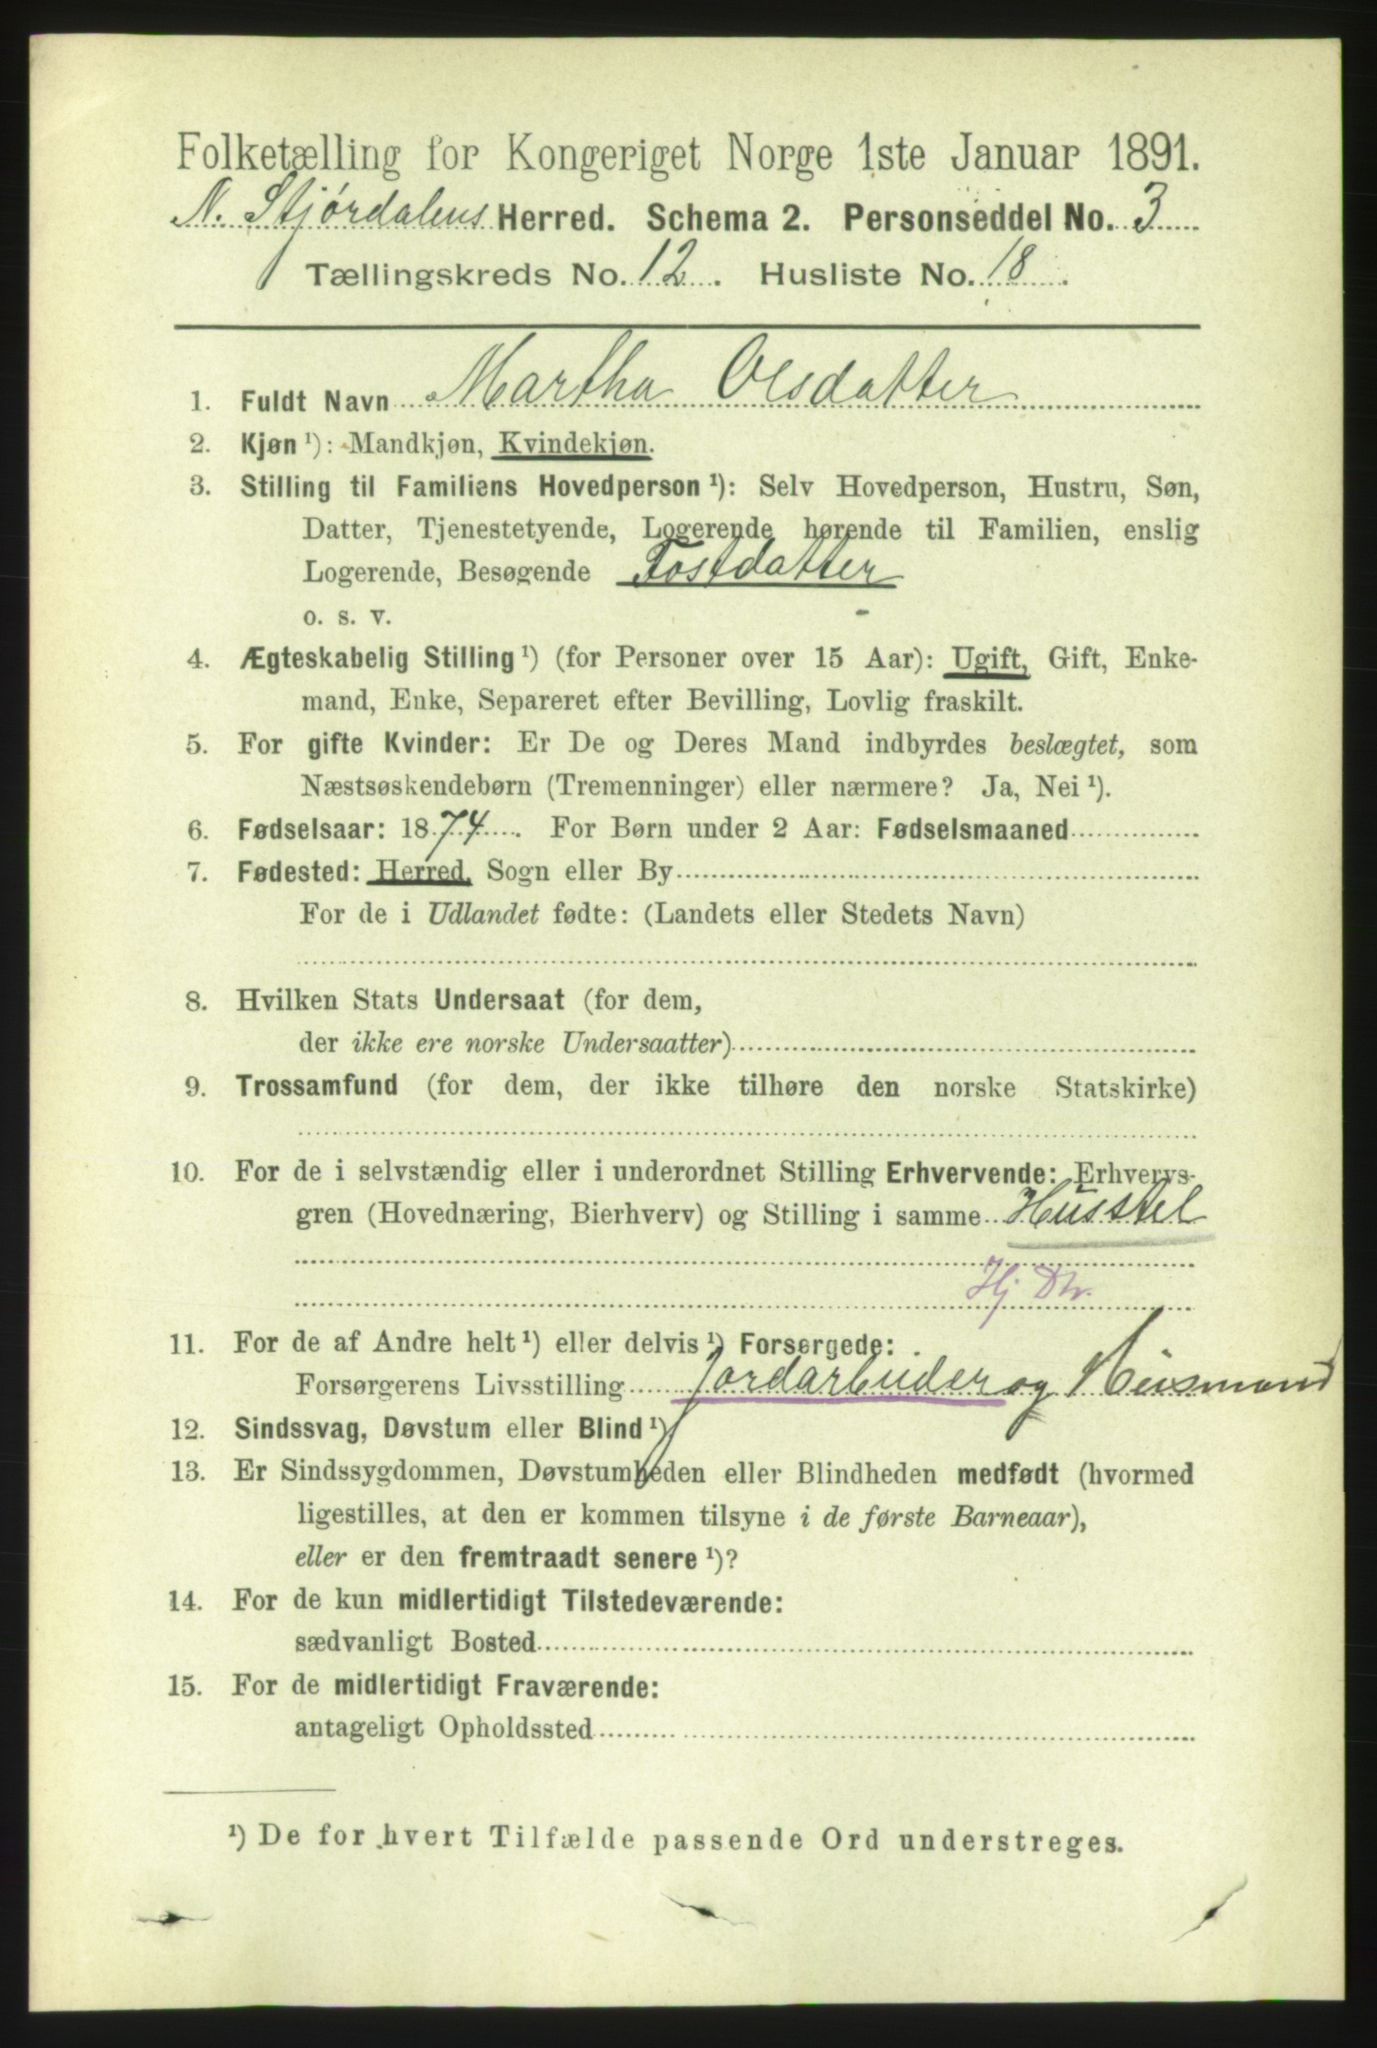 Folketælling for Kongeriget Norge 1ste Januar 1891.
N. Stjördalens Herred. Schema 2. Personseddel No. 3
Tællingskreds No. 12. Husliste No. 18.
1. Fuldt Navn Martha Olsdatter
2. Kjøn ¹): Mandkjøn, Kvindekjøn.
3. Stilling til Familiens Hovedperson ¹): Selv Hovedperson, Hustru, Søn,
Datter, Tjenestetyende, Logerende hørende til Familien, enslig
Logerende, Besøgende Fostdatter
o. s. v.
4. Ægteskabelig Stilling ¹) (for Personer over 15 Aar): Ugift, Gift, Enke-
mand, Enke, Separeret efter Bevilling, Lovlig fraskilt.
5. For gifte Kvinder: Er De og Deres Mand indbyrdes beslægtet, som
Næstsøskendebørn (Tremenninger) eller nærmere? Ja, Nei ¹).
6. Fødselsaar: 1874. For Børn under 2 Aar: Fødselsmaaned
7. Fødested: Herred, Sogn eller By
For de i Udlandet fødte: (Landets eller Stedets Navn)
8. Hvilken Stats Undersaat (for dem,
der ikke ere norske Undersaatter)
9. Trossamfund (for dem, der ikke tilhøre den norske Statskirke)
10. For de i selvstændig eller i underordnet Stilling Erhvervende: Erhvervs-
gren (Hovednæring, Bierhverv) og Stilling i samme Husstel
Hj Dtr.
11. For de af Andre helt ¹) eller delvis ¹) Forsørgede:
Forsørgerens Livsstilling Jordarbuder og Husmand
12. Sindssvag, Døvstum eller Blind ¹)
13. Er Sindssygdommen, Døvstumheden eller Blindheden medfødt (hvormed
ligestilles, at den er kommen tilsyne i de første Barneaar),
eller er den fremtraadt senere ¹)?
14. For de kun midlertidigt Tilstedeværende:
sædvanligt Bosted
15. For de midlertidigt Fraværende:
antageligt Opholdssted
¹) De for hvert Tilfælde passende Ord understreges.